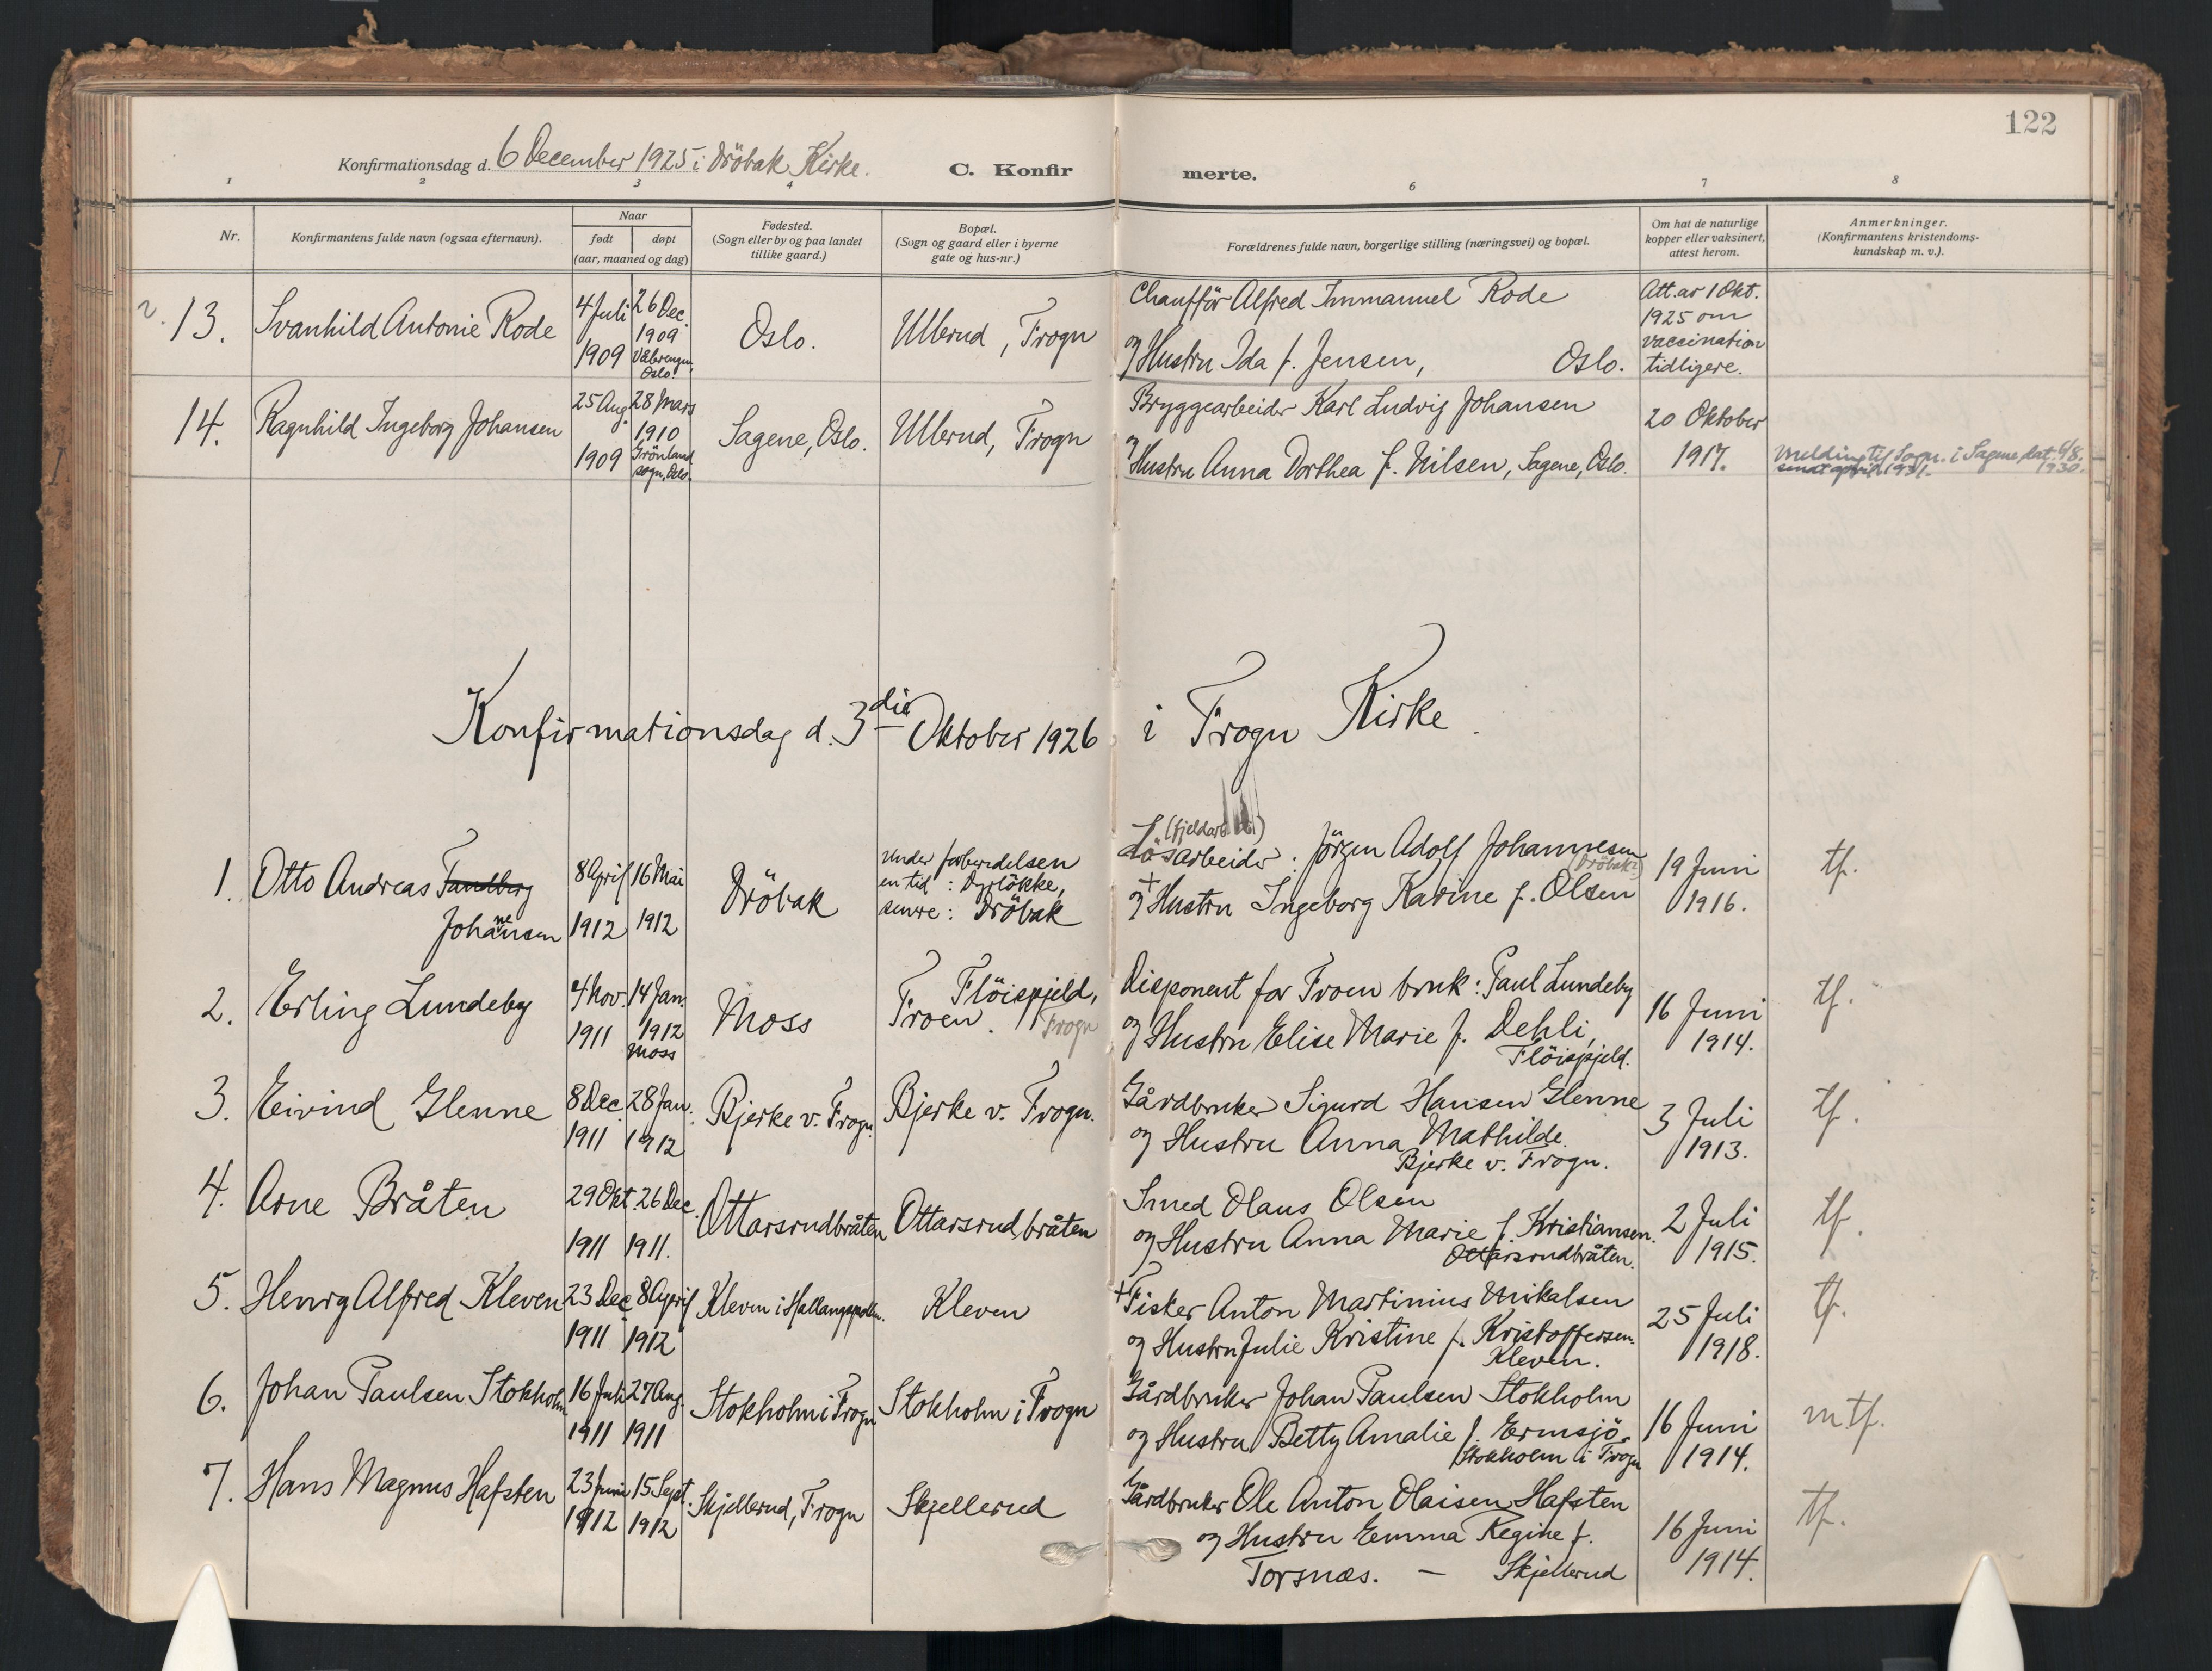 122
Konfirmationsdag d. 6 December 1925 i Dröbak Kirke.
C. Konfirmerte.
1 2 3 4 6 7 8
Nr.
Konfirmantens fulde navn (ogsaa efternavn).
Naar
født døpt
(aar, maaned og dag)
Fødested.
(Sogn eller by og paa landet
tillike gaard.)
Bopæl.
(Sogn og gaard eller i byerne
gate og hus-nr.)
Forældrenes fulde navn, borgerlige stilling (næringsvei) og bopæl.
Om hat de naturlige
kopper eller vaksinert,
attest herom.
Anmerkninger.
(Konfirmantens kristendoms-
kundskap m. v.).
13.
Svanhild Antonie Rode
4 Juli
1909
26 Dec.
1909
Vålerengen,
Oslo.
Oslo.
Ullerud, Frogn
Chaufför Alfred Immanuel Rode
og Hustru Ida f. Jensen, Oslo.
Att. av 1 Okt.
1925 om
vaccination
tidligere.
14.
Ragnhild Ingeborg Johansen
25 Aug.
1909
28 Mars
1910
Grönland
sogn, Oslo.
Sagene, Oslo.
Ullerud, Frogn
Bryggearbeider Karl Ludvig Johansen
og Hustru Anna Dorthea f. Nilsen, Sagene, Oslo.
20 Oktober
1917.
Melding til Sogn. i Sagene dat. 6/8.
1930.
Konfirmationsdag d. 3die Oktober 1926 i Frogn Kirke.
1.
Otto Andreas Sandberg
Johannesen
8 April
1912
16 Mai
1912
Dröbak
Under forberedelsen
en tid: Dyrlökke,
senere: Dröbak
Lösarbeider: Jörgen Adolf Johannesen
(Dröbak)
og + Hustru Ingeborg Karine f. Olsen
19 Juni
1916.
tf.
2.
Erling Lundeby
4 Nov.
1911
14 Jan.
1912
Moss
Moss
Flöispjeld,
Froen. Frogn
Disponent for Froen bruk: Paul Lundeby
og Hustru Elise Marie f. Dehli,
Flöispjeld.
16 Juni
1914.
tf.
3.
Eivind Glenne
8 Dec.
1911
28 Jan.
1912
Bjerke v. Frogn.
Bjerke v. Frogn.
Gårdbruker Sigurd Hansen Glenne
og Hustru Anna Mathilde.
Bjerke v. Frogn.
3 Juli
1913.
tf.
4.
Arne Bråten
29 Okt.
1911
26 Dec.
1911.
Ottarsrudbråten
Ottarsrudbråten
Smed Olaus Olsen
og Hustru Anna Marie f. Kristiansen.
Ottarsrudbråten.
2 Juli
1915.
tf.
5.
Henry Alfred Kleven
23 Dec
1911
8 April
1912
Kleven i Hallangspollen.
Kleven
+ Fisker Anton Martinius Mikalsen
og Hustru Julie Kristine f. Kristoffersen.
Kleven.
25 Juli
1918.
tf.
6.
Johan Paulsen Stokholm
16 Juli
1911
27 Aug.
1911
Stokholm i Frogn
Stokholm i Frogn
Gårdbruker Johan Paulsen Stokholm
og Hustru Betty Amalie f. Ermsjö.
Stokholm i Frogn
16 Juni
1914.
mtf.
7.
Hans Magnus Hafsten
23 Juni
1912
15 Sept.
1912
Skjellerud, Frogn
Skjellerud
Gårdbruker Ole Anton Olaisen Hafsten
og Hustru Emma Regine f.
Torsnæs. — Skjellerud
16 Juni
1914.
tf.